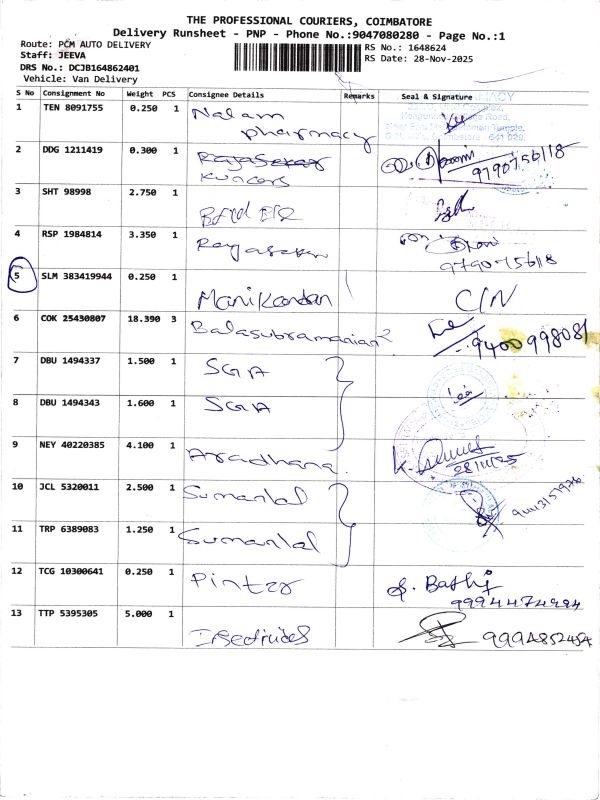 THE PROFESSIONAL COURIERS, COIMBATORE
Delivery Runsheet - PNP - Phone No.:9047080280 - Page No.:1
Route: PCM AUTO DELIVERY
Staff: JEEVA
DRS No.: DCJB164862401
Vehicle: Van Delivery
RS No.: 1648624
RS Date: 28-Nov-2025
S No Consignment No Weight PCS Consignee Details Remarks Seal & Signature
1 TEN 8091755 0.250 1 Nalam
pharmacy
2 DDG 1211419 0.300 1 Rajasekar
9790756118
3 SHT 98998 2.750 1
4 RSP 1984814 3.350 1 Rajasekar
9790756118
5 SLM 383419944 0.250 1 Manikandan C/N
6 COK 25430807 18.390 3 Balasubramanian
9400998081
7 DBU 1494337 1.500 1 SGA
8 DBU 1494343 1.600 1 SGA
9 NEY 40220385 4.100 1 Aradhana.
28/11/25
10 JCL 5320011 2.500 1 Sumanlal
11 TRP 6389083 1.250 1 Sumanlal
12 TCG 10300641 0.250 1 Pinter
13 TTP 5395305 5.000 1